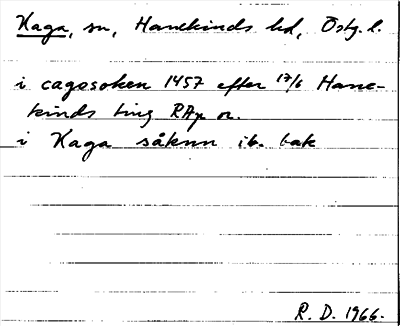 Kaga, sn, Hanekinds hd, Östg. l.
i cagosoken 1457 efter 17/6 Hane-
kinds ting RAp or.
i Kaga såknn ib. bak
R. D. 1966.